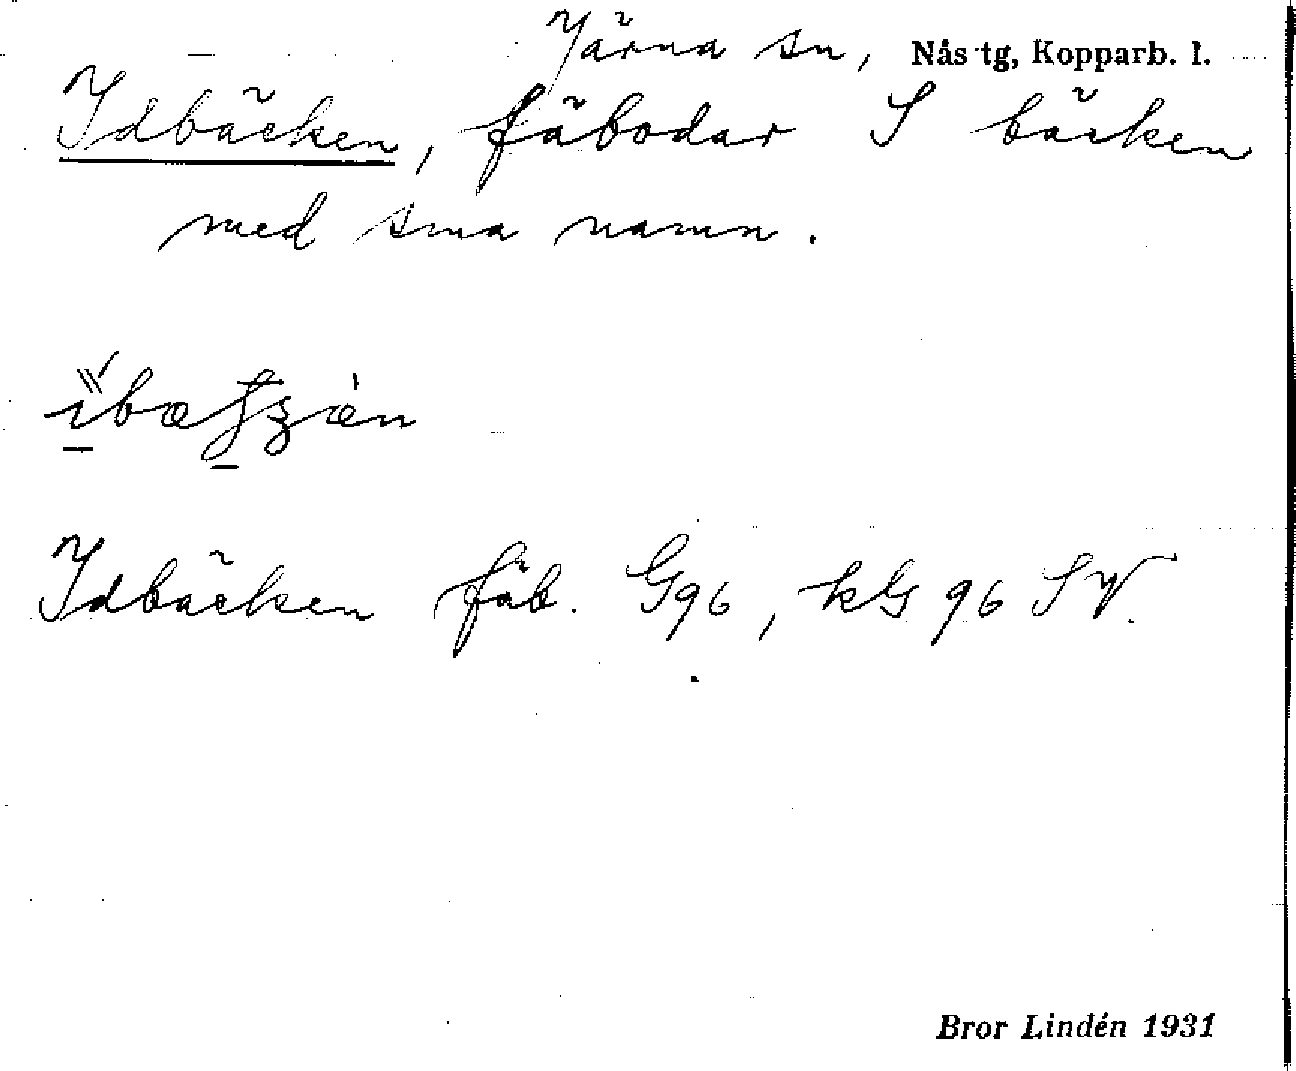 Järna sn, Nås tg, Kopparb. l.
Idbäcken, fäbodar S bäcken
med sma namn.
Idbäcken fäb. G96, kG 96 SV.
Bror Lindén 1931